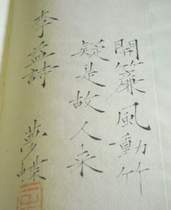 開簾風動竹
疑是故人來
李益詩
夢蝶